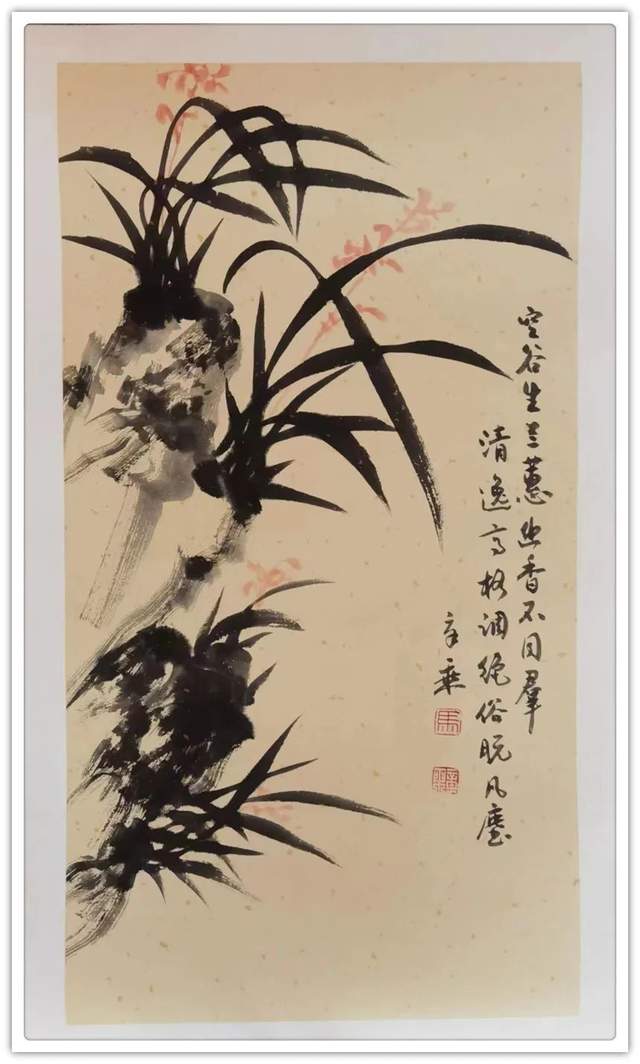 空谷生兰蕙幽香不同羣
清逸高格调绝俗脱凡塵
辛乘
馬